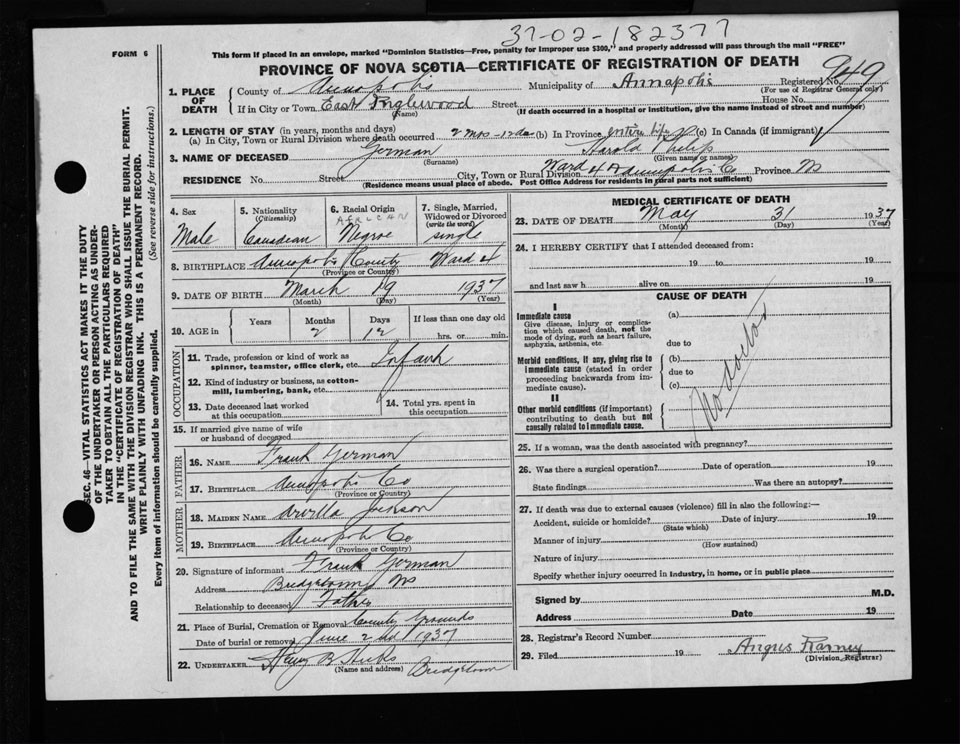 37-02-182377
FORM 6
This form if placed in an envelope, marked "Dominion Statistics—Free, penalty for improper use $300," and properly addressed will pass through the mail "FREE"
PROVINCE OF NOVA SCOTIA—CERTIFICATE OF REGISTRATION OF DEATH
949
SEC. 46—VITAL STATISTICS ACT MAKES IT THE DUTY
OF THE UNDERTAKER OR PERSON ACTING AS UNDER-
TAKER TO OBTAIN ALL THE PARTICULARS REQUIRED
IN THE "CERTIFICATE OF REGISTRATION OF DEATH"
AND TO FILE THE SAME WITH THE DIVISION REGISTRAR WHO SHALL ISSUE THE BURIAL PERMIT.
WRITE PLAINLY WITH UNFADING INK. THIS IS A PERMANENT RECORD.
Every item of information should be carefully supplied. (See reverse side for instructions.)
1. PLACE OF DEATH
County of Annapolis Municipality of Annapolis Registered No.
(For use of Registrar General only)
If in City or Town East Inglewood Street House No.
(Name) (If death occurred in a hospital or institution, give the name instead of street and number)
2. LENGTH OF STAY (in years, months and days)
(a) In City, Town or Rural Division where death occurred 2 mos - 12 da (b) In Province entire life (c) In Canada (if immigrant)
3. NAME OF DECEASED German Harold Philip
(Surname) (Given name or names)
RESIDENCE No. Street City, Town or Rural Division Ward 4 Annapolis Co Province NS
(Residence means usual place of abode. Post Office Address for residents in rural parts not sufficient)
4. Sex
Male
5. Nationality
(Citizenship)
Canadian
6. Racial Origin
AFRICAN
Negroe
7. Single, Married,
Widowed or Divorced
(write the word)
single
8. BIRTHPLACE Annapolis County Ward 4
(Province or Country)
9. DATE OF BIRTH March 19 1937
(Month) (Day) (Year)
10. AGE in
Years Months Days If less than one day old
2 12 hrs. or min.
OCCUPATION
11. Trade, profession or kind of work as
spinner, teamster, office clerk, etc. Infant
12. Kind of industry or business, as cotton-
mill, lumbering, bank, etc.
13. Date deceased last worked
at this occupation
14. Total yrs. spent in
this occupation
15. If married give name of wife
or husband of deceased
FATHER
16. NAME Frank German
17. BIRTHPLACE Annapolis Co
(Province or Country)
MOTHER
18. MAIDEN NAME Arvilla Jackson
19. BIRTHPLACE Annapolis Co
(Province or Country)
20. Signature of informant Frank German
Address Bridgetown NS
Relationship to deceased Father
21. Place of Burial, Cremation or Removal County Grounds
Date of burial or removal June 2nd 1937
22. UNDERTAKER Harry B Hicks
(Name and address) Bridgetown
MEDICAL CERTIFICATE OF DEATH
23. DATE OF DEATH May 31 1937
(Month) (Day) (Year)
24. I HEREBY CERTIFY that I attended deceased from:
19 to 19
and last saw h alive on 19
CAUSE OF DEATH
I
Immediate cause
Give disease, injury or complica-
tion which caused death, not the
mode of dying, such as heart failure,
asphyxia, asthenia, etc.
(a)
due to
Morbid conditions, if any, giving rise to
immediate cause (stated in order
proceeding backwards from im-
mediate cause).
(b)
due to
(c)
No doctor
II
Other morbid conditions (if important)
contributing to death but not
causally related to immediate cause.
25. If a woman, was the death associated with pregnancy?
26. Was there a surgical operation? Date of operation 19
State findings Was there an autopsy?
27. If death was due to external causes (violence) fill in also the following:—
Accident, suicide or homicide? Date of injury 19
(State which)
Manner of injury
(How sustained)
Nature of injury
Specify whether injury occurred in industry, in home, or in public place
Signed by M.D.
Address Date 19
28. Registrar's Record Number
29. Filed 19 Angus Ramey
(Division Registrar)